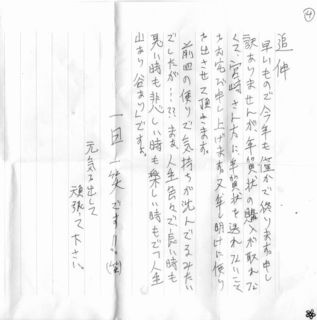 ④
追伸
早いもので今年も僅かで終ります。申し
訳ありませんが年賀状の購入が取れな
くて、宮崎さん方に年賀状を送れないこと
お詫び申し上げます。又年明けに便り
お出させて頂きます。
前回の便りで気持ちが沈んでるみたい
でしたが…?? まあ、人生なんて良い時も
悪い時も悲しい時も楽しい時もで「人生
山あり谷あり」です。
一日一笑です!!(笑)
元気を出して
頑張て下さい。